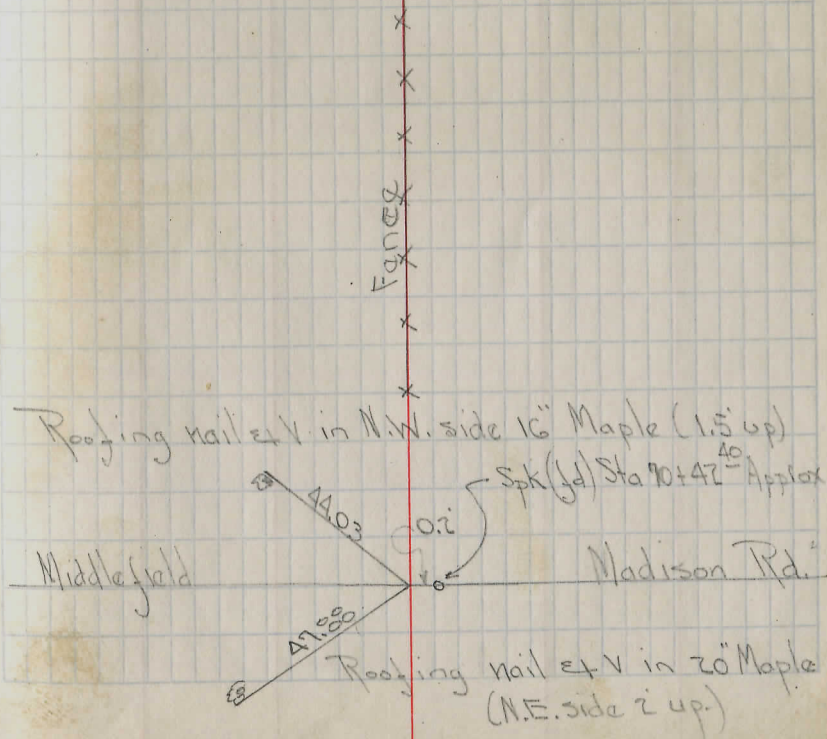 Fence
Roofing nail & V in N.W. side 16" Maple (1.5' up)
Spk (fd) Sta 70+42 40 Approx
44.03
0.2'
Middlefield
Madison Rd.
47.00
Roofing nail & V in 20" Maple
(N.E. side 2' up.)